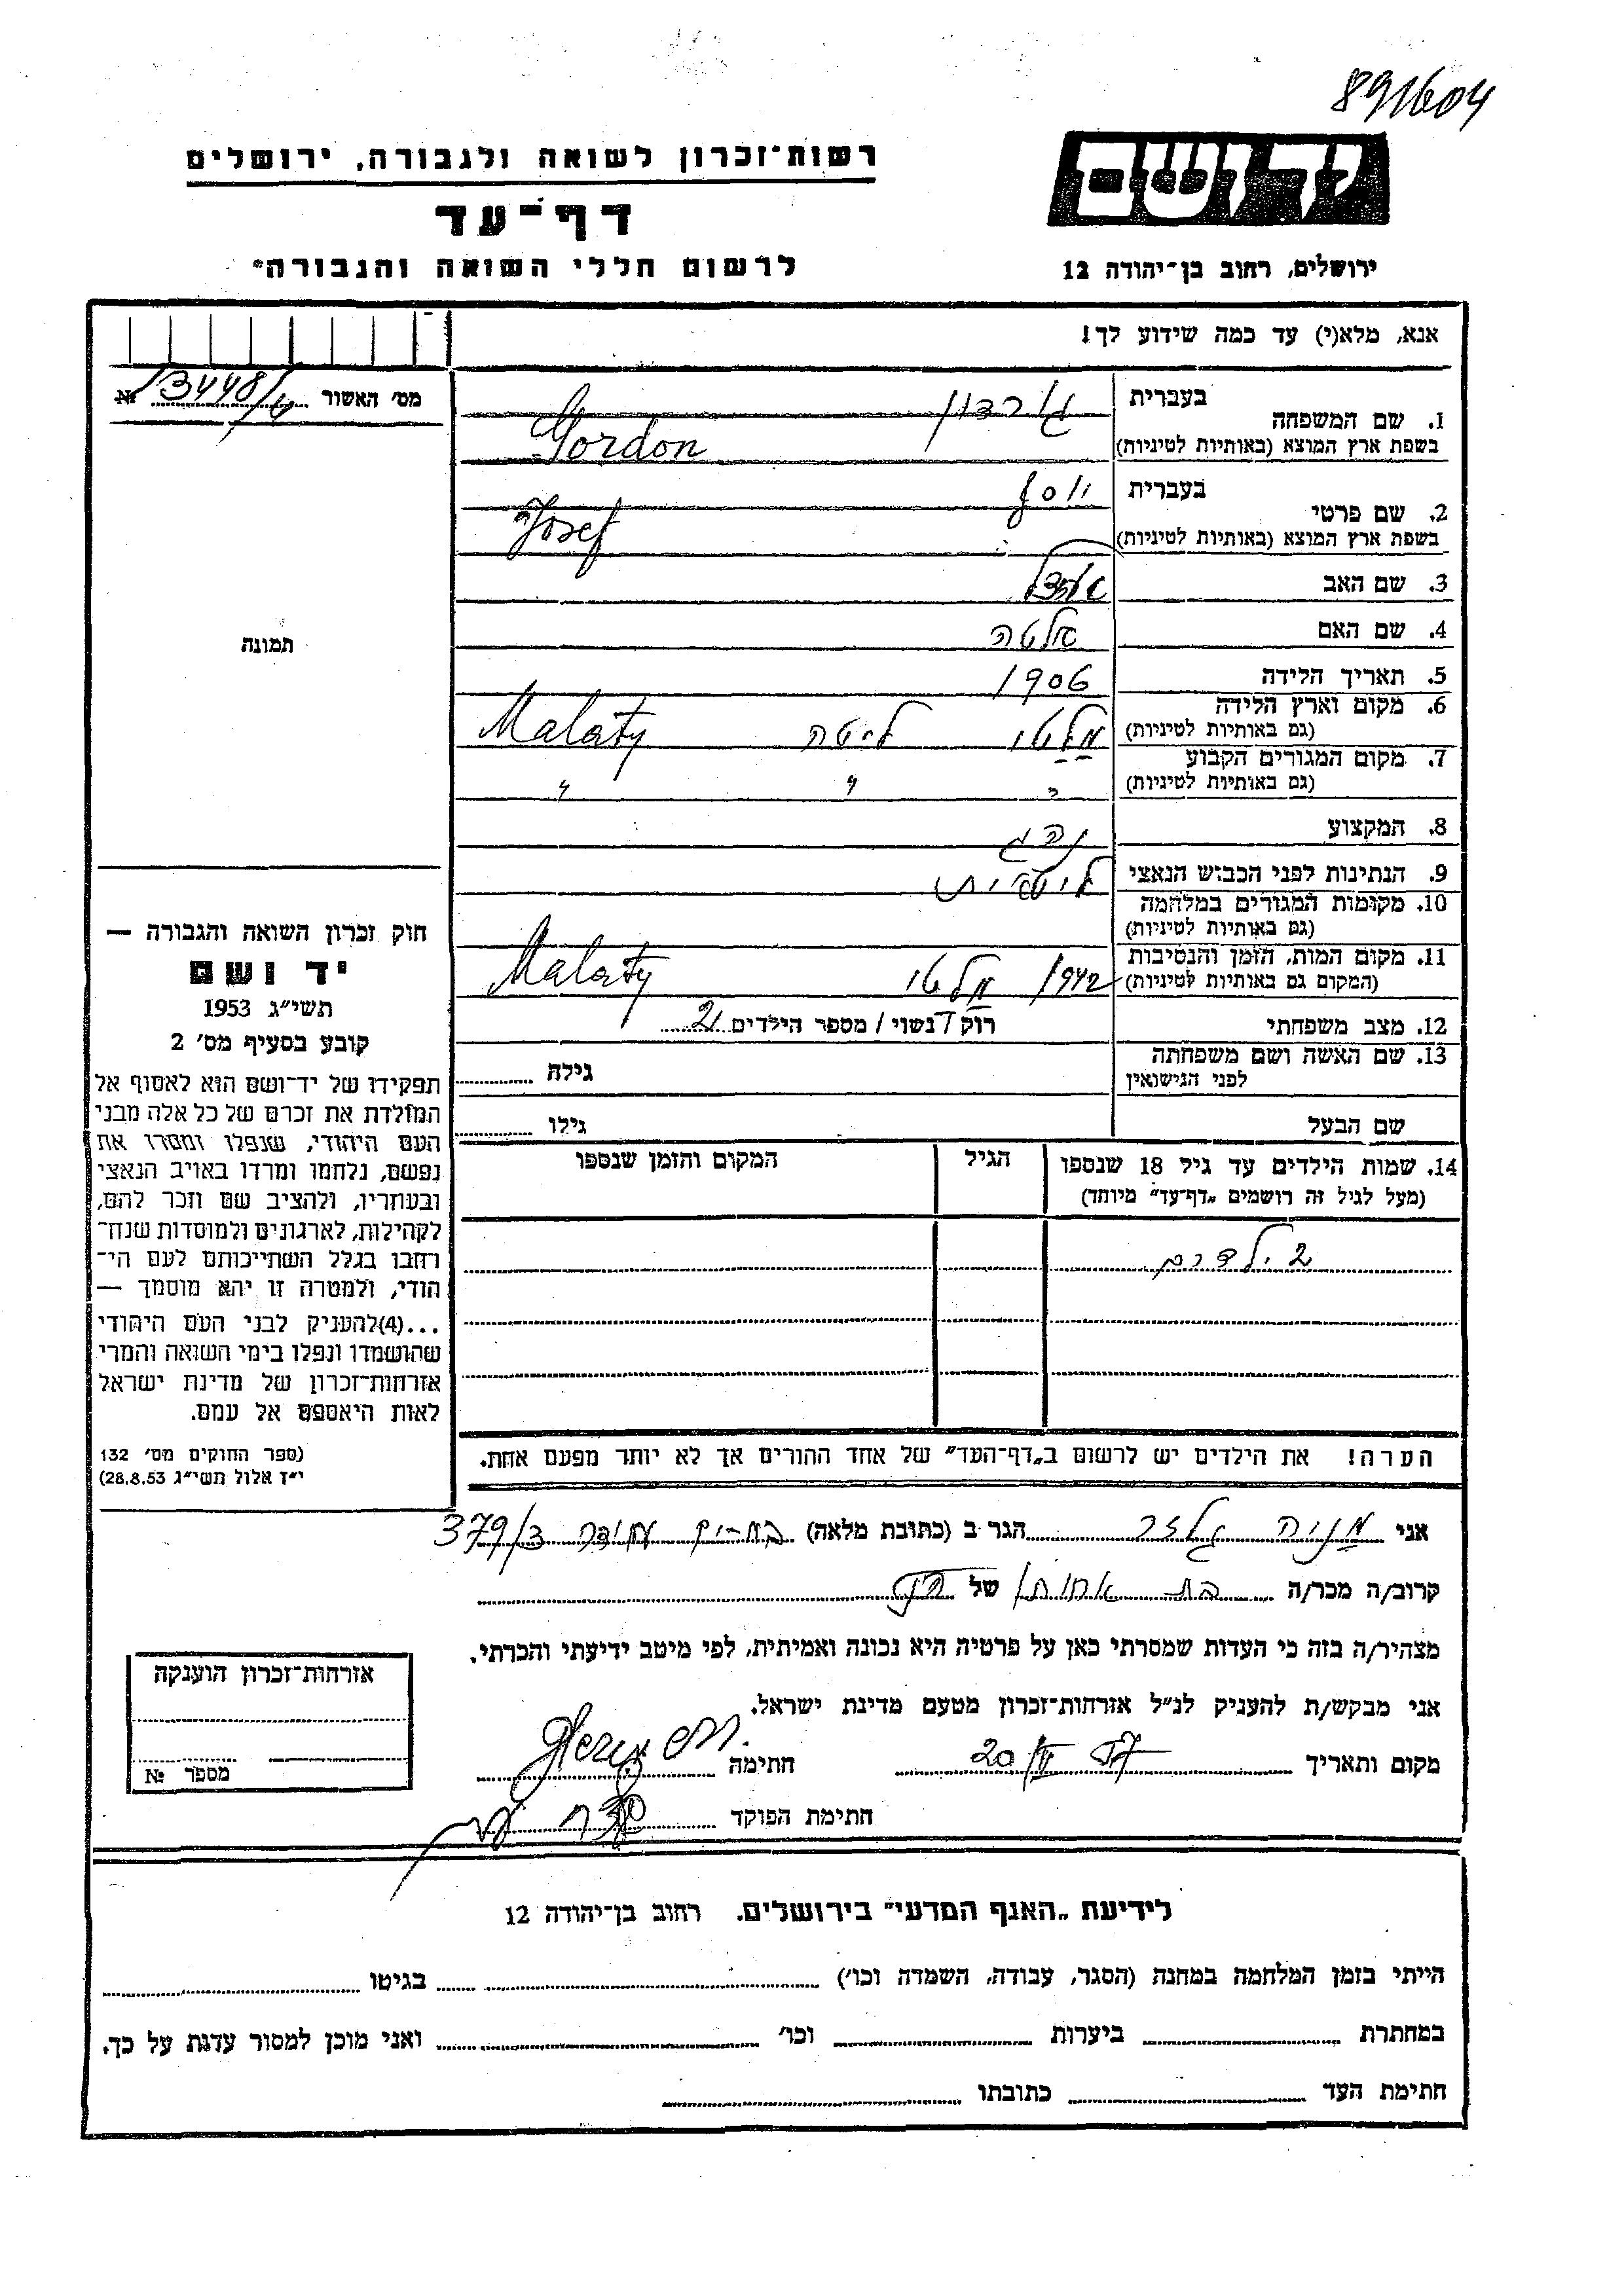 891604
רשות־זכרון לשואה ולגבורה, ירושלים
יד ושם
דף־עד
לרשום חללי השואה והגבורה"
ירושלים, רחוב בן־יהודה 12
אנא, מלא(י) עד כמה שידוע לך!
מס׳ האשור 13448/4 №
1. שם המשפחה
בעברית גורדון
בשפת ארץ המוצא (באותיות לטיניות) Gordon
2. שם פרטי
בעברית יוסף
בשפת ארץ המוצא (באותיות לטיניות) Josef
3. שם האב
4. שם האם אלטה
5. תאריך הלידה 1906
6. מקום וארץ הלידה
(גם באותיות לטיניות) מלטי ליטה Malaty
7. מקום המגורים הקבוע
(גם באותיות לטיניות) " " "
8. המקצוע נהג
9. הנתינות לפני הכבוש הנאצי ליטאית
10. מקומות המגורים במלחמה
(גם באותיות לטיניות)
11. מקום המות, הזמן והנסיבות
(המקום גם באותיות לטיניות) 1942 מלטי Malaty
12. מצב משפחתי רוק / נשוי / מספר הילדים 2
13. שם האשה ושם משפחתה
לפני הנישואין גילה
שם הבעל גילו
14. שמות הילדים עד גיל 18 שנספו
(מעל לגיל זה רושמים „דף־עד" מיוחד)
הגיל
המקום והזמן שנספו
2 ילדים
הערה! את הילדים יש לרשום ב„דף־העד" של אחד ההורים אך לא יותר מפעם אחת.
תמונה
חוק זכרון השואה והגבורה —
יד ושם
תשי״ג 1953
קובע בסעיף מס׳ 2
תפקידו של יד־ושם הוא לאסוף אל
המולדת את זכרם של כל אלה מבני
העם היהודי, שנפלו ומסרו את
נפשם, נלחמו ומרדו באויב הנאצי
ובעוזריו, ולהציב שם וזכר להם,
לקהילות, לארגונים ולמוסדות שנח־
רבו בגלל השתייכותם לעם הי־
הודי, ולמטרה זו יהא מוסמך —
...(4)להעניק לבני העם היהודי
שהושמדו ונפלו בימי השואה והמרי
אזרחות־זכרון של מדינת ישראל
לאות היאספם אל עמם.
(ספר החוקים מס׳ 132
י״ז אלול תשי״ג 28.8.53)
אני מניה גלזר הגר ב (כתובת מלאה) 379/3
קרוב/ה מכר/ה בת אחות של הנ"ל
מצהיר/ה בזה כי העדות שמסרתי כאן על פרטיה היא נכונה ואמיתית, לפי מיטב ידיעתי והכרתי.
אני מבקש/ת להעניק לנ״ל אזרחות־זכרון מטעם מדינת ישראל.
מקום ותאריך 20 57 חתימה
חתימת הפוקד
אזרחות־זכרון הוענקה
מספר №
לידיעת „האגף המדעי" בירושלים. רחוב בן־יהודה 12
הייתי בזמן המלחמה במחנה (הסגר, עבודה, השמדה וכו׳) בגיטו
במחתרת ביערות וכו׳ ואני מוכן למסור עדות על כך.
חתימת העד כתובתו